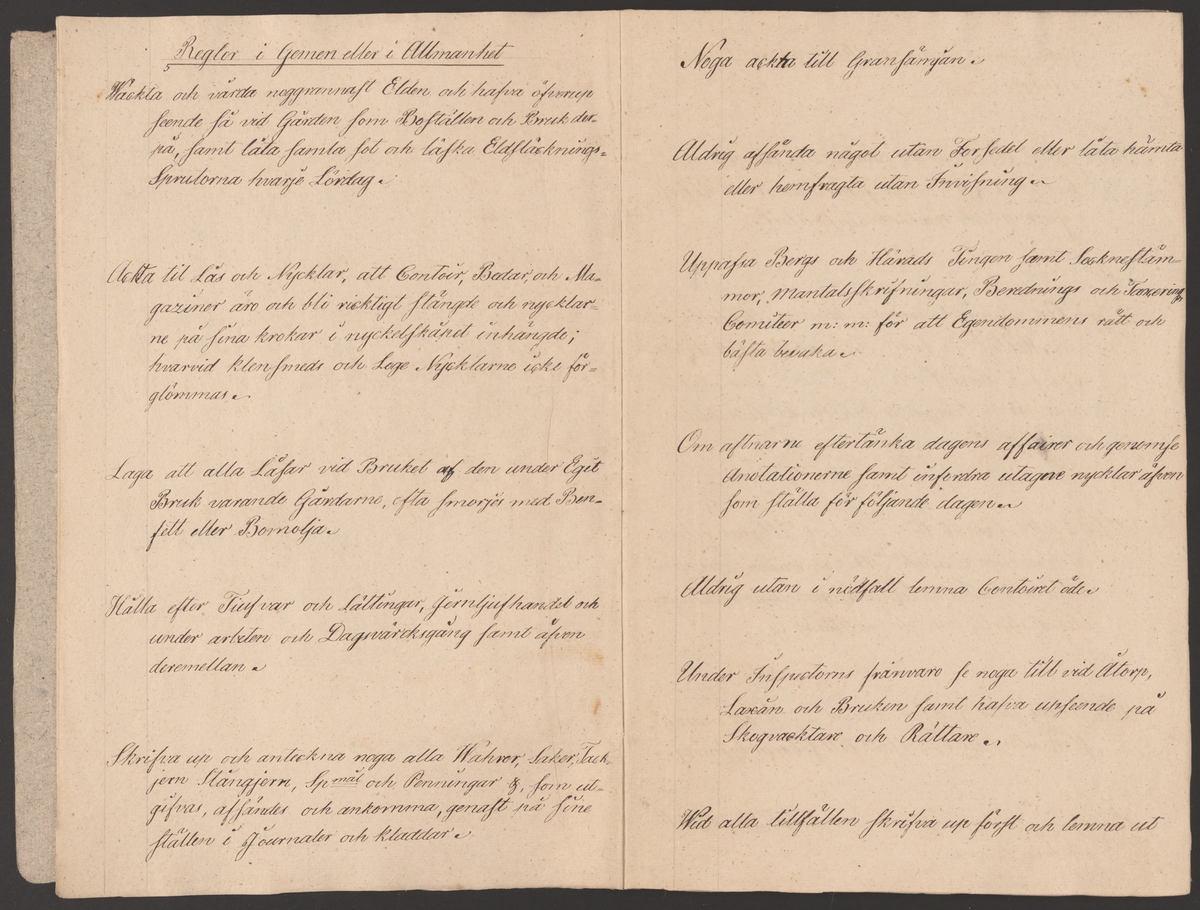 Reglor i Gemen eller i Allmanhet
Wackta och vårda noggrannast Elden och hafva öfverup
seende så vid Gården som Boställen och Bruk der-
på, samt låta samla sot och läska Eldsläcknings-
Sprutorna hvarje Lördag.
Ackta til Lås och Nycklar, att Contoir, Bodar, och Ma-
gaziner äro och bli ricktigt stängde och nycklar-
ne på sina krokar i nyckelskåpet inhängde;
hvarvid klensmeds och Lege Nycklarne icke för-
glömmas.
Laga att alla Låsar vid Bruket af den under Eget
Bruk varande Gårdarne, ofta smörjes med Ben-
fett eller Bomolja.
Hålla efter Tiufvar och Lättingar, Jernljufhandel och
under arbeten och Dagsvärcksgång samt äfven
deremellan.
Skrifva up och anteckna noga alla Wahror, Saker, Tack-
jern Stångjern, Spmål och Penningar &, som ut-
gifvas, afsändes och ankomma, genast på sine
ställen i Journaler och kladdar.
Noga ackta till Gransämjan.
Aldrig afsända något utan Forsedel eller låta hämta
eller hemfragta utan Invisning.
Uppassa Bergs och Härads Tingen samt Sockneståm-
mor, Mantalsskrifningar, Berednings och Taxerings
Comiteer m: m: för att Egendommens rätt och
bästa bevaka.
Om aftnarne eftertänka dagens affairer och genomse
Anotationerne samt infordra utagne nycklar äfven
som ställa för följande dagen.
Aldrig utan i nödfall lemna Contoiret öde.
Under Inspectorns frånvaro se noga till vid Åtorp,
Laxån och Bruken samt hafva upseende på
Skogvacktare och Rättare.
Wid alla tillfällen skrifva up först och lemna ut